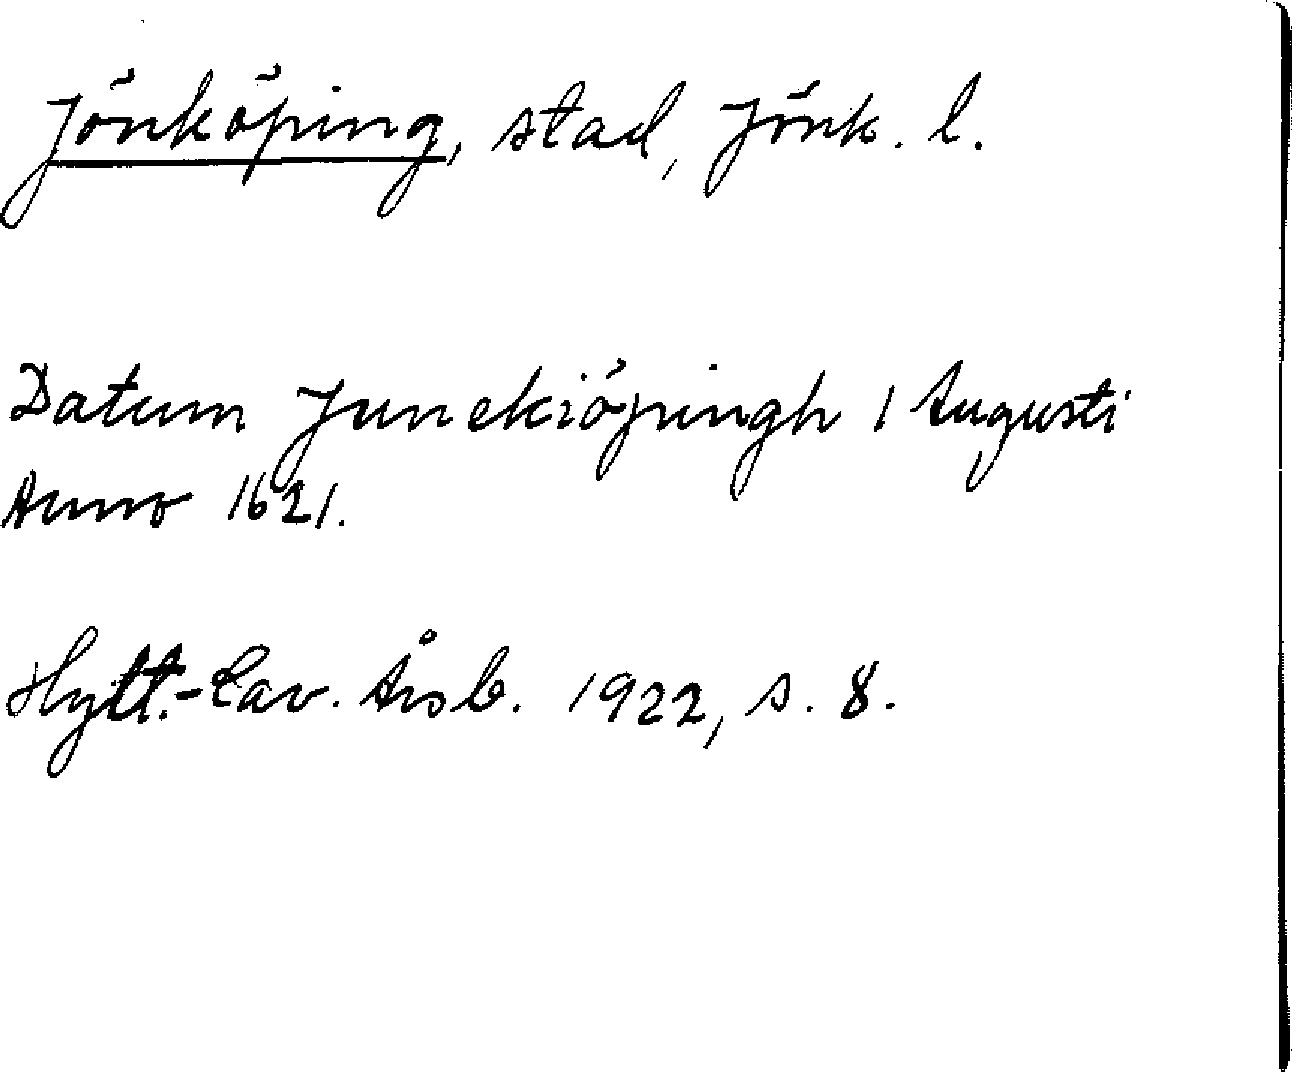 Jönköping, stad, Jönk. l.
Datum Junekiöpingh 1 Augusti
Anno 1621.
Hylt.-Cav. Årsb. 1922, s. 8.